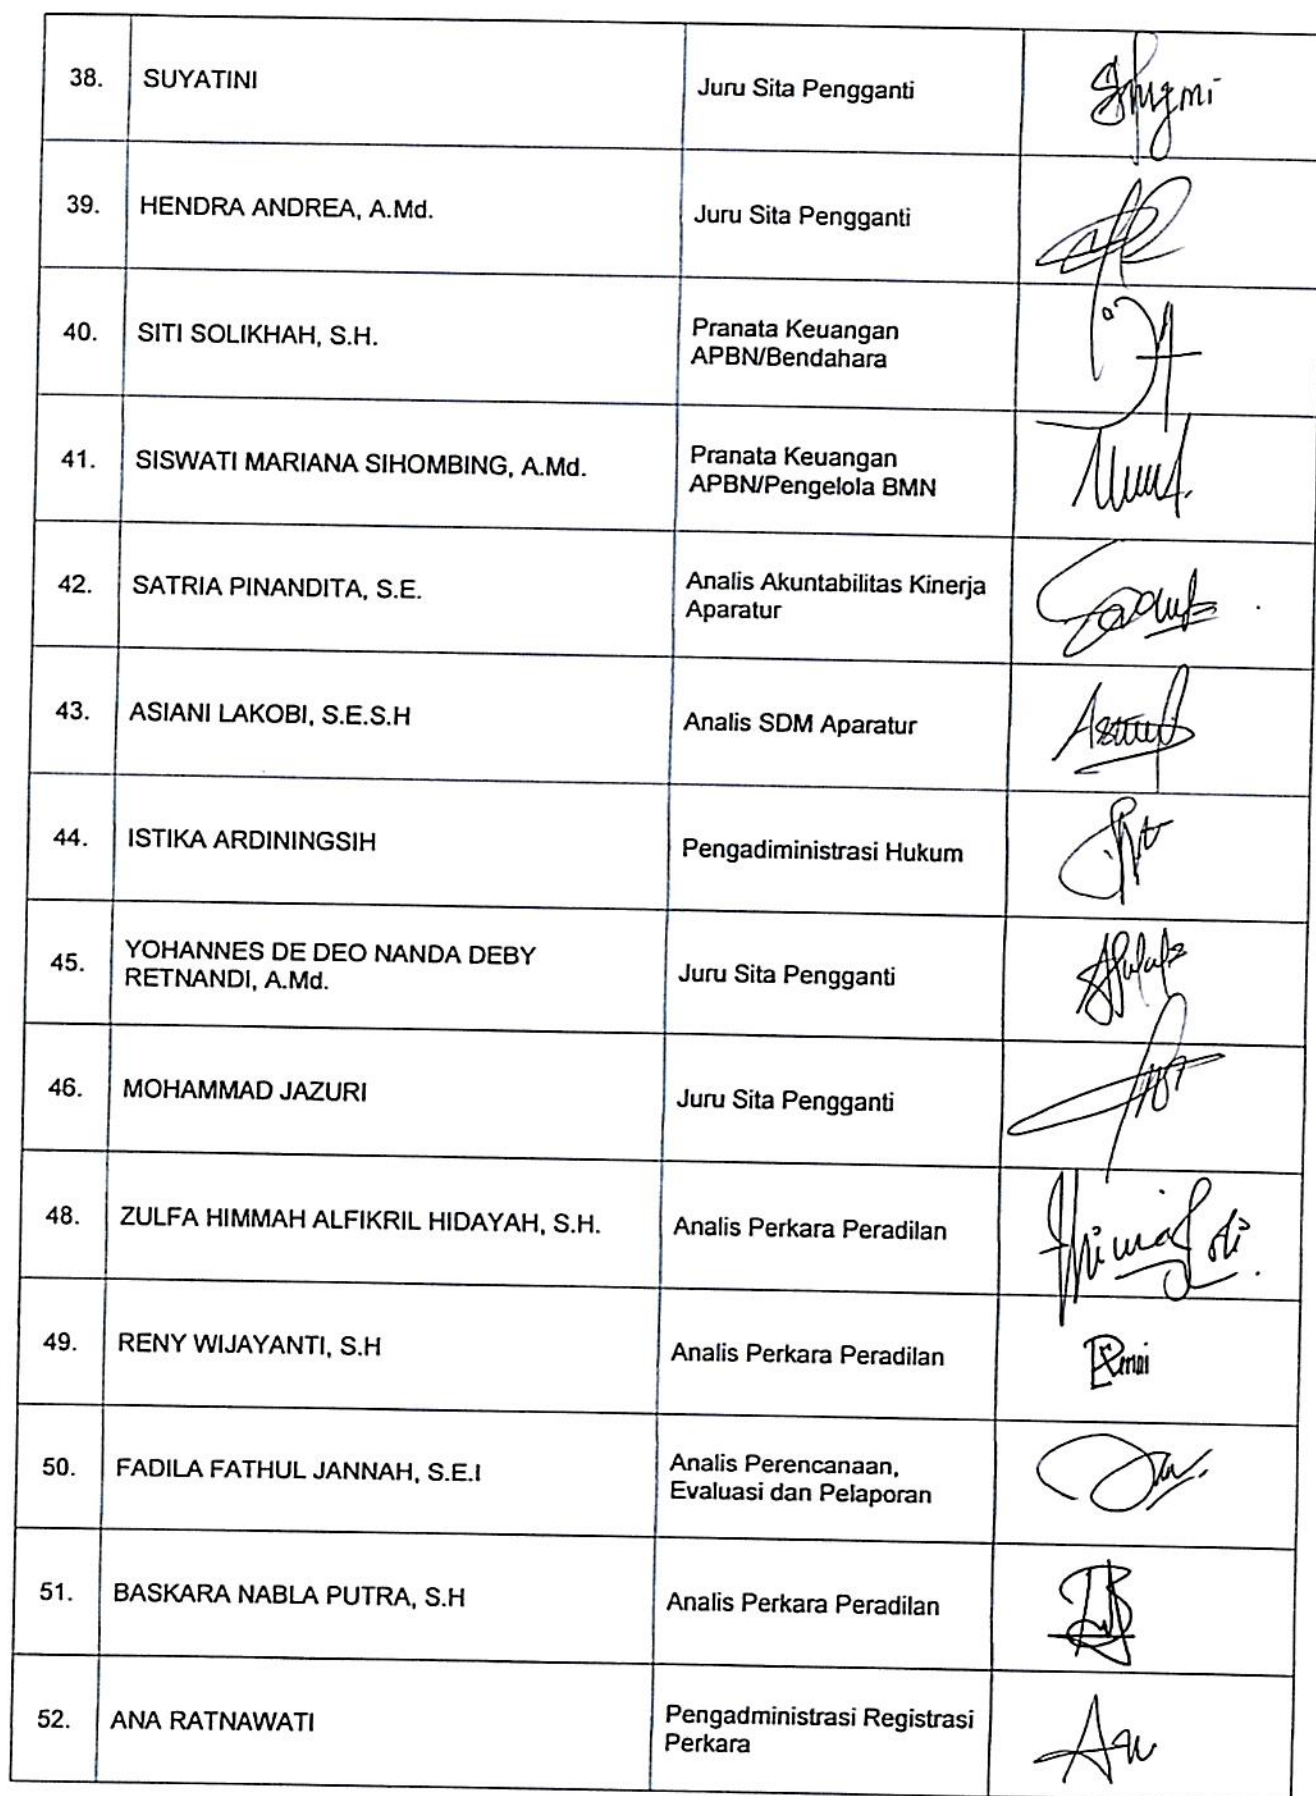 38. SUYATINI Juru Sita Pengganti
39. HENDRA ANDREA, A.Md. Juru Sita Pengganti
40. SITI SOLIKHAH, S.H. Pranata Keuangan
APBN/Bendahara
41. SISWATI MARIANA SIHOMBING, A.Md. Pranata Keuangan
APBN/Pengelola BMN
42. SATRIA PINANDITA, S.E. Analis Akuntabilitas Kinerja
Aparatur
43. ASIANI LAKOBI, S.E.S.H Analis SDM Aparatur
44. ISTIKA ARDININGSIH Pengadiministrasi Hukum
45. YOHANNES DE DEO NANDA DEBY
RETNANDI, A.Md. Juru Sita Pengganti
46. MOHAMMAD JAZURI Juru Sita Pengganti
48. ZULFA HIMMAH ALFIKRIL HIDAYAH, S.H. Analis Perkara Peradilan
49. RENY WIJAYANTI, S.H Analis Perkara Peradilan
50. FADILA FATHUL JANNAH, S.E.I Analis Perencanaan,
Evaluasi dan Pelaporan
51. BASKARA NABLA PUTRA, S.H Analis Perkara Peradilan
52. ANA RATNAWATI Pengadministrasi Registrasi
Perkara